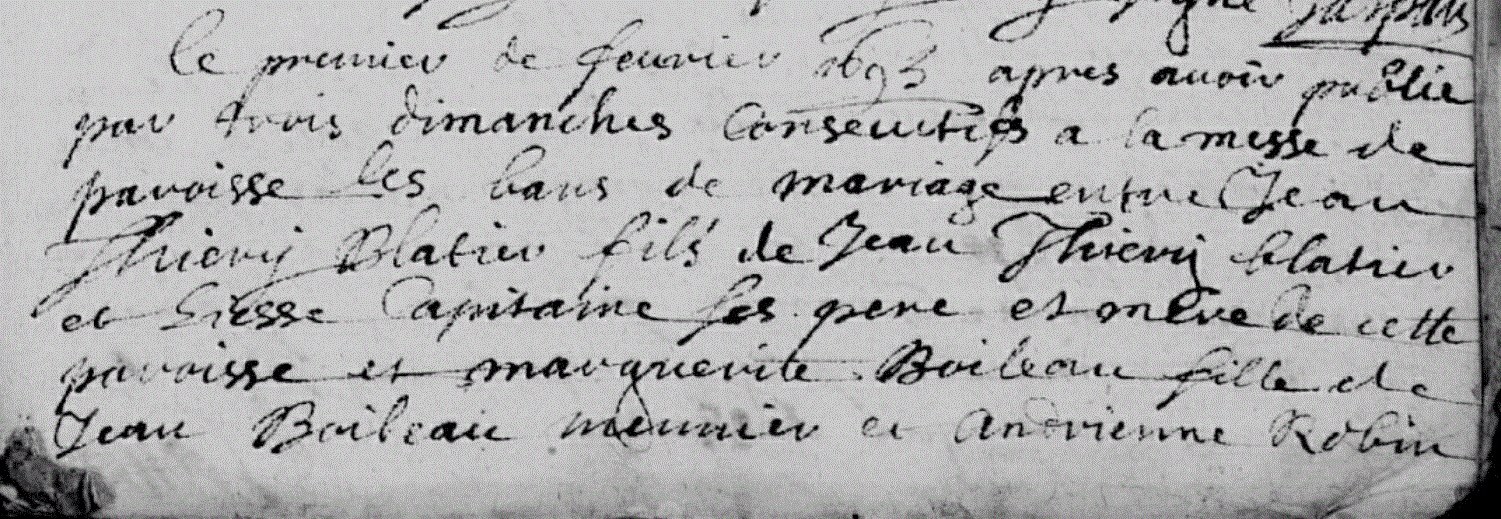 signe
le premier de feurier 1693 apres auoir publie
par trois dimanches Consecutifs a la messe de
paroisse les bans de mariage entre Jean
Thierij Blatier fils de Jean Thierij blatier
et Liesse Capitaine ses pere et mere de cette
paroisse et marguerite Boileau fille de
Jean Boileau meunier et andrienne Robin